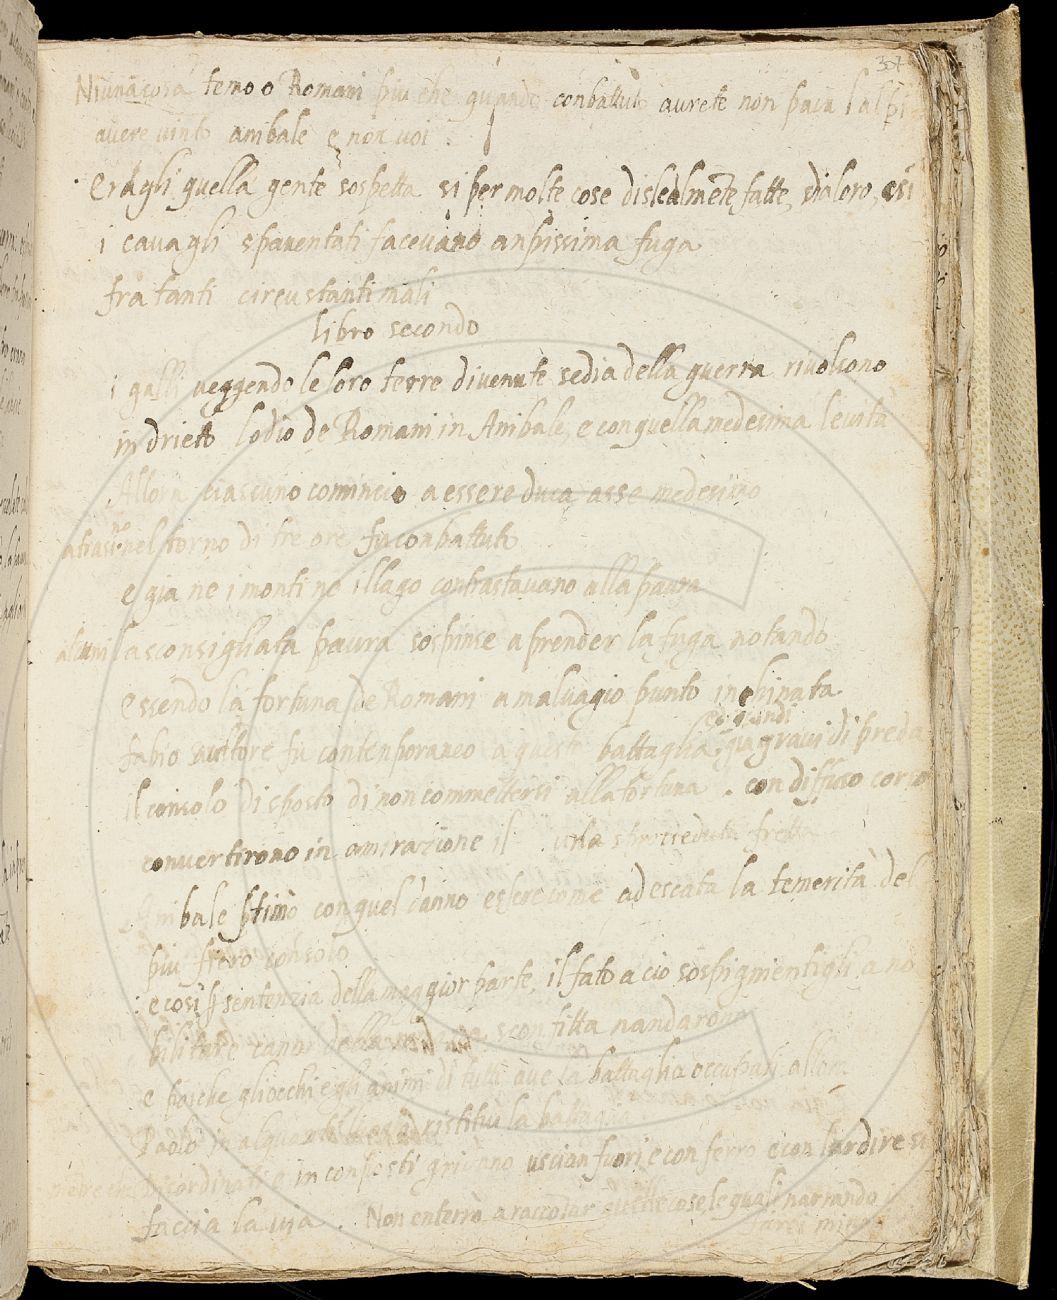 307
Niuna cosa temo o Romani piu che quando conbattuto aurete non paia
avere vinto anibale e non voi
Eragli quella gente sospetta si per molte cose dislealmēte fatte, dialoro, ssi
i cavagli spaventati facevano anpissima fuga
fra tanti circustanti mali
libro secondo
i galli veggendo le loro terre divenute sedia della guerra rivolsono
in drieto lodio de Romani in Anibale, e con quella medesima levità
Allora ciascuno comincio a essere duca asse medesimo
nel torno di tre ore fu conbattuto
e gia ne i monti ne il lago contrastavano alla paura
alcuni la sconsigliata paura sospinse a prender la fuga notando
essendo la fortuna de Romani a malvagio punto inchinata
quindi
fabio auttore fu contenporaneo a questa battaglia. gravi di preda
Il consolo disposto di non commettersi alla fortuna. con diffuso corso
convertirono in amirazione il
Anibale stimò con quel danno essere come adescata la temerità del
piu fiero consolo
e cosi sentenzia della maggior parte, il fato a cio sospignientigli, a no
bilitare sconfitta nandarono
e poi che gli occhi e gli animi di tutti ave la battaglia occupati allora
Paolo in alquanti ristitui la battaglia
uscian fuori e con ferro e con lardire si
faccia la via. Non enterrò a raccolar quelle cose le quali narrando